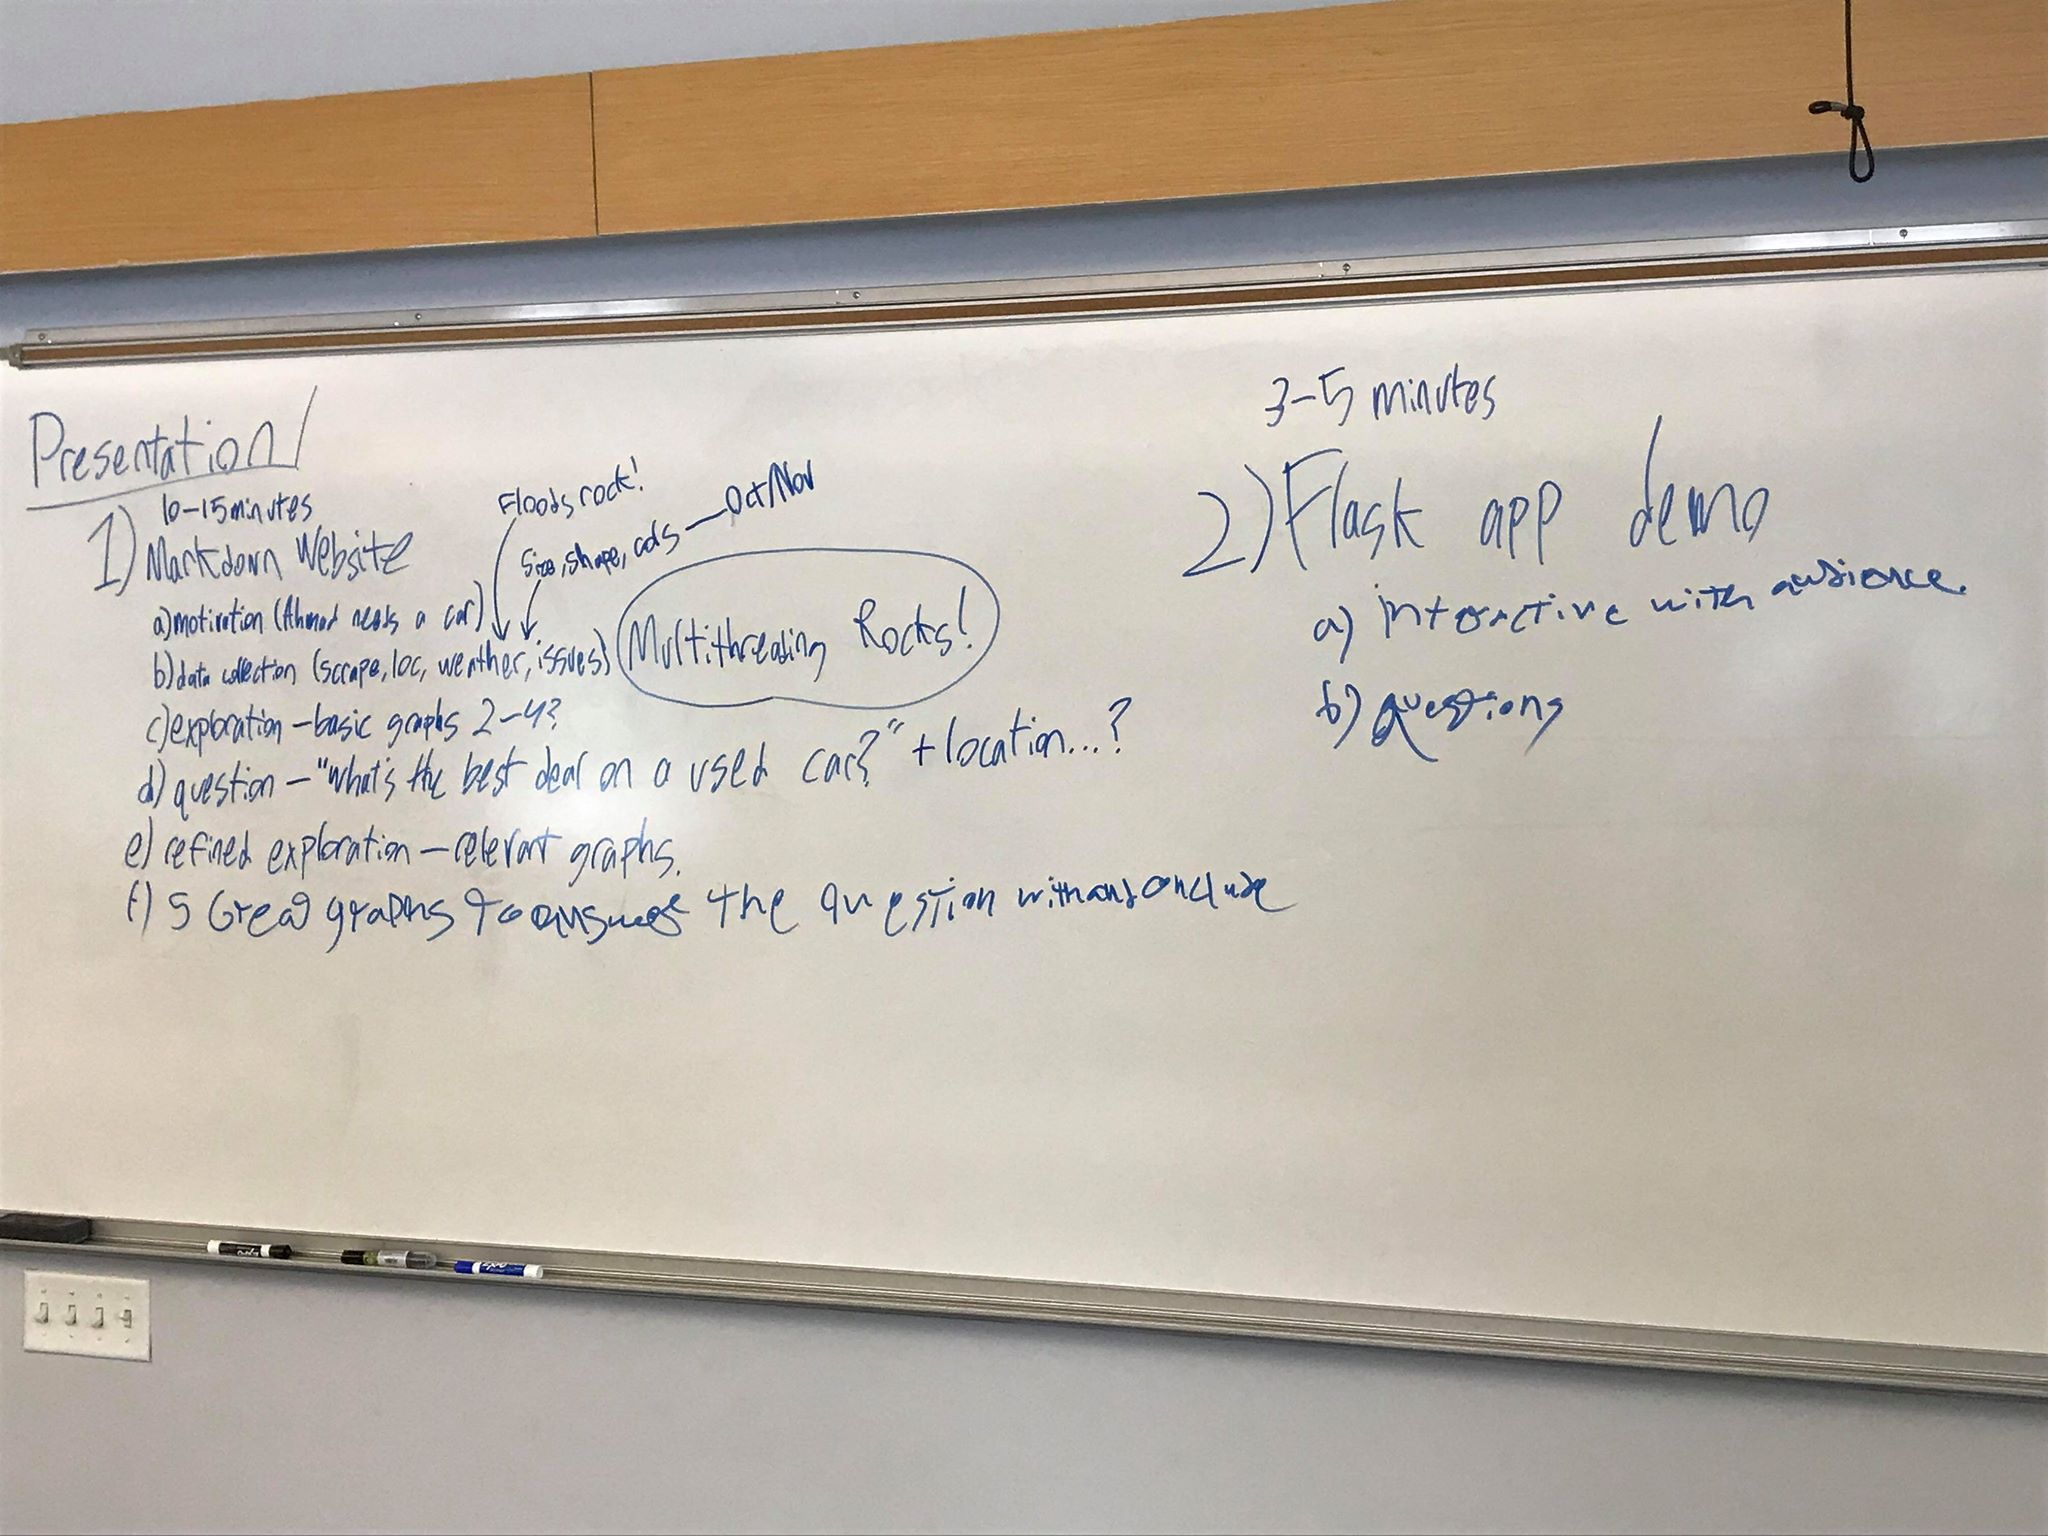 Presentation
10-15 minutes
1) Markdown Website
Floods rock!
size, shape, cols — Oct/Nov
a) motivation (Ahmad needs a car)
b) data collection (scrape, loc, weather, issues)
Multithreading Rocks!
c) exploration - basic graphs 2-4?
d) question - "what's the best deal on a used car?" + location...?
e) refined exploration - relevant graphs.
f) 5 Great graphs to answer the question with and conclude
3-5 minutes
2) Flask app demo
a) interactive with audience.
b) questions